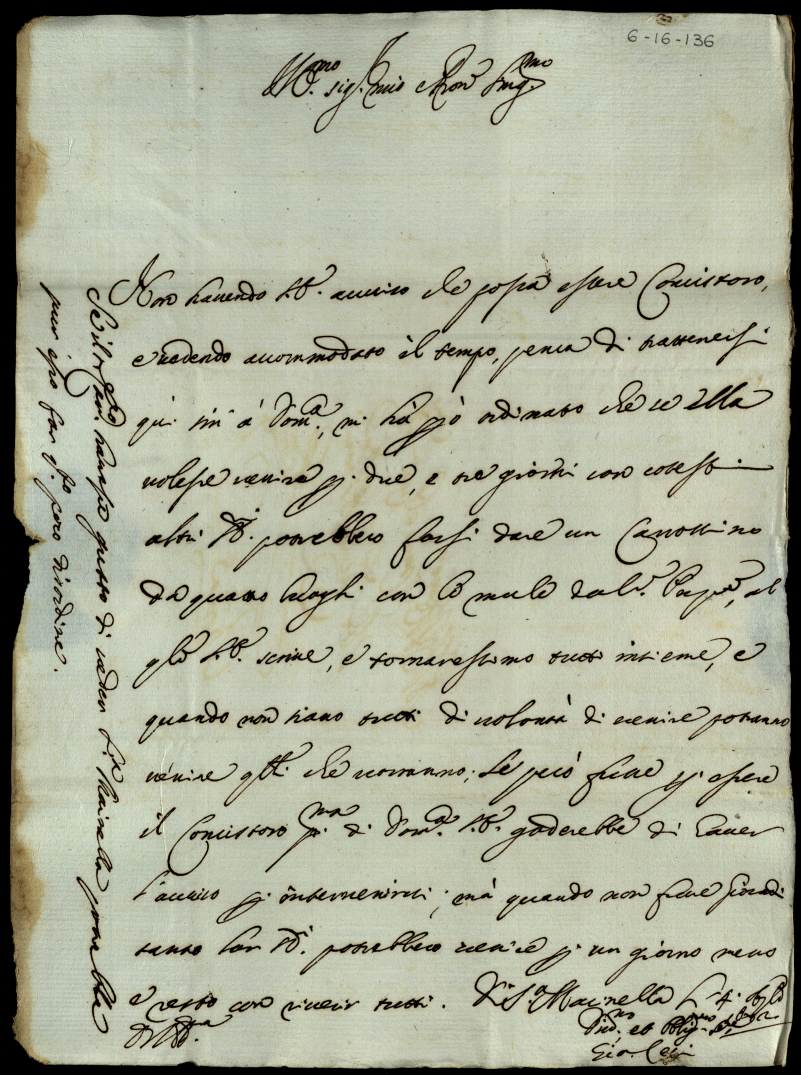 6-16-136
Ill.mo sig.r mio
Non havendo S.E. avviso che possa essere Concistoro,
e vedendo accommodato il tempo, pensa di trattenersi
quì sin' à Dom.ca, mi hà p.ò ordinato che se Ella
volesse venire p. due, e tre giorni con cotesti
altri SS.ri potrebbero farsi dare un Carrozzino
da quattro luoghi con le mule dal S.r al
q.le S.E. scrive, e tornaressimo tutti insieme, e
quando non siano tutti di volontà di venire potranno
venire q.lli che vorranno; Se però fusse p. essere
il Concistoro p.ma di Dom.ca S.E. goderebbe di haver
l'avviso p. intervenirvi; mà quando non fusse
tanto lor SS.ri potrebbero venire p. un giorno meno
e resto con riverir tutti. Di S.ta Marinella
Div.mo et Obblig.mo
Gio.
havesse gusto di veder S.ta Marinella potrebbe
pur esso far q.to poco disordine.